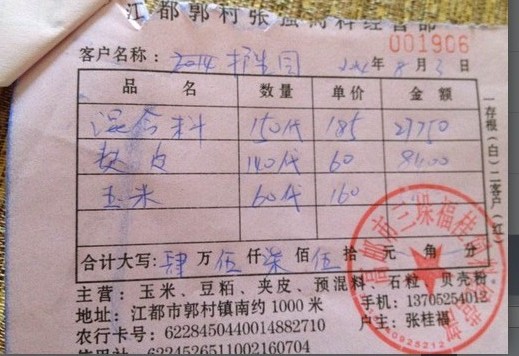 江都郭村张强饲料经营部
001906
客户名称：2014 年8月3日
品 名 数量 单价 金额
混合料 150代 185 27750
麸皮 140代 60 8400
玉米 60代 160
合计大写：肆万伍仟柒佰伍拾元角分
一存根（白）二客户（红）
主营：玉米、豆粕、夹皮、预混料、石粒、贝壳粉
地址：江都市郭村镇南约1000米 手机：13705254012
农行卡号：6228450440014882710 户主：张桂福
信用社 6224526511002160704